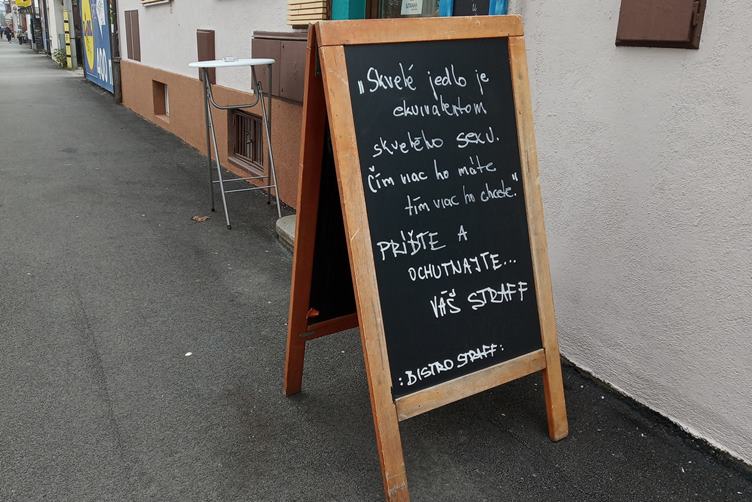 „Skvelé jedlo je
ekvivalentom
skvelého sexu.
Čím viac ho máte
tím viac ho chcete."
PRÍĎTE A
OCHUTNAJTE...
VÁŠ STRAFF
:BISTRO STRAFF:
400